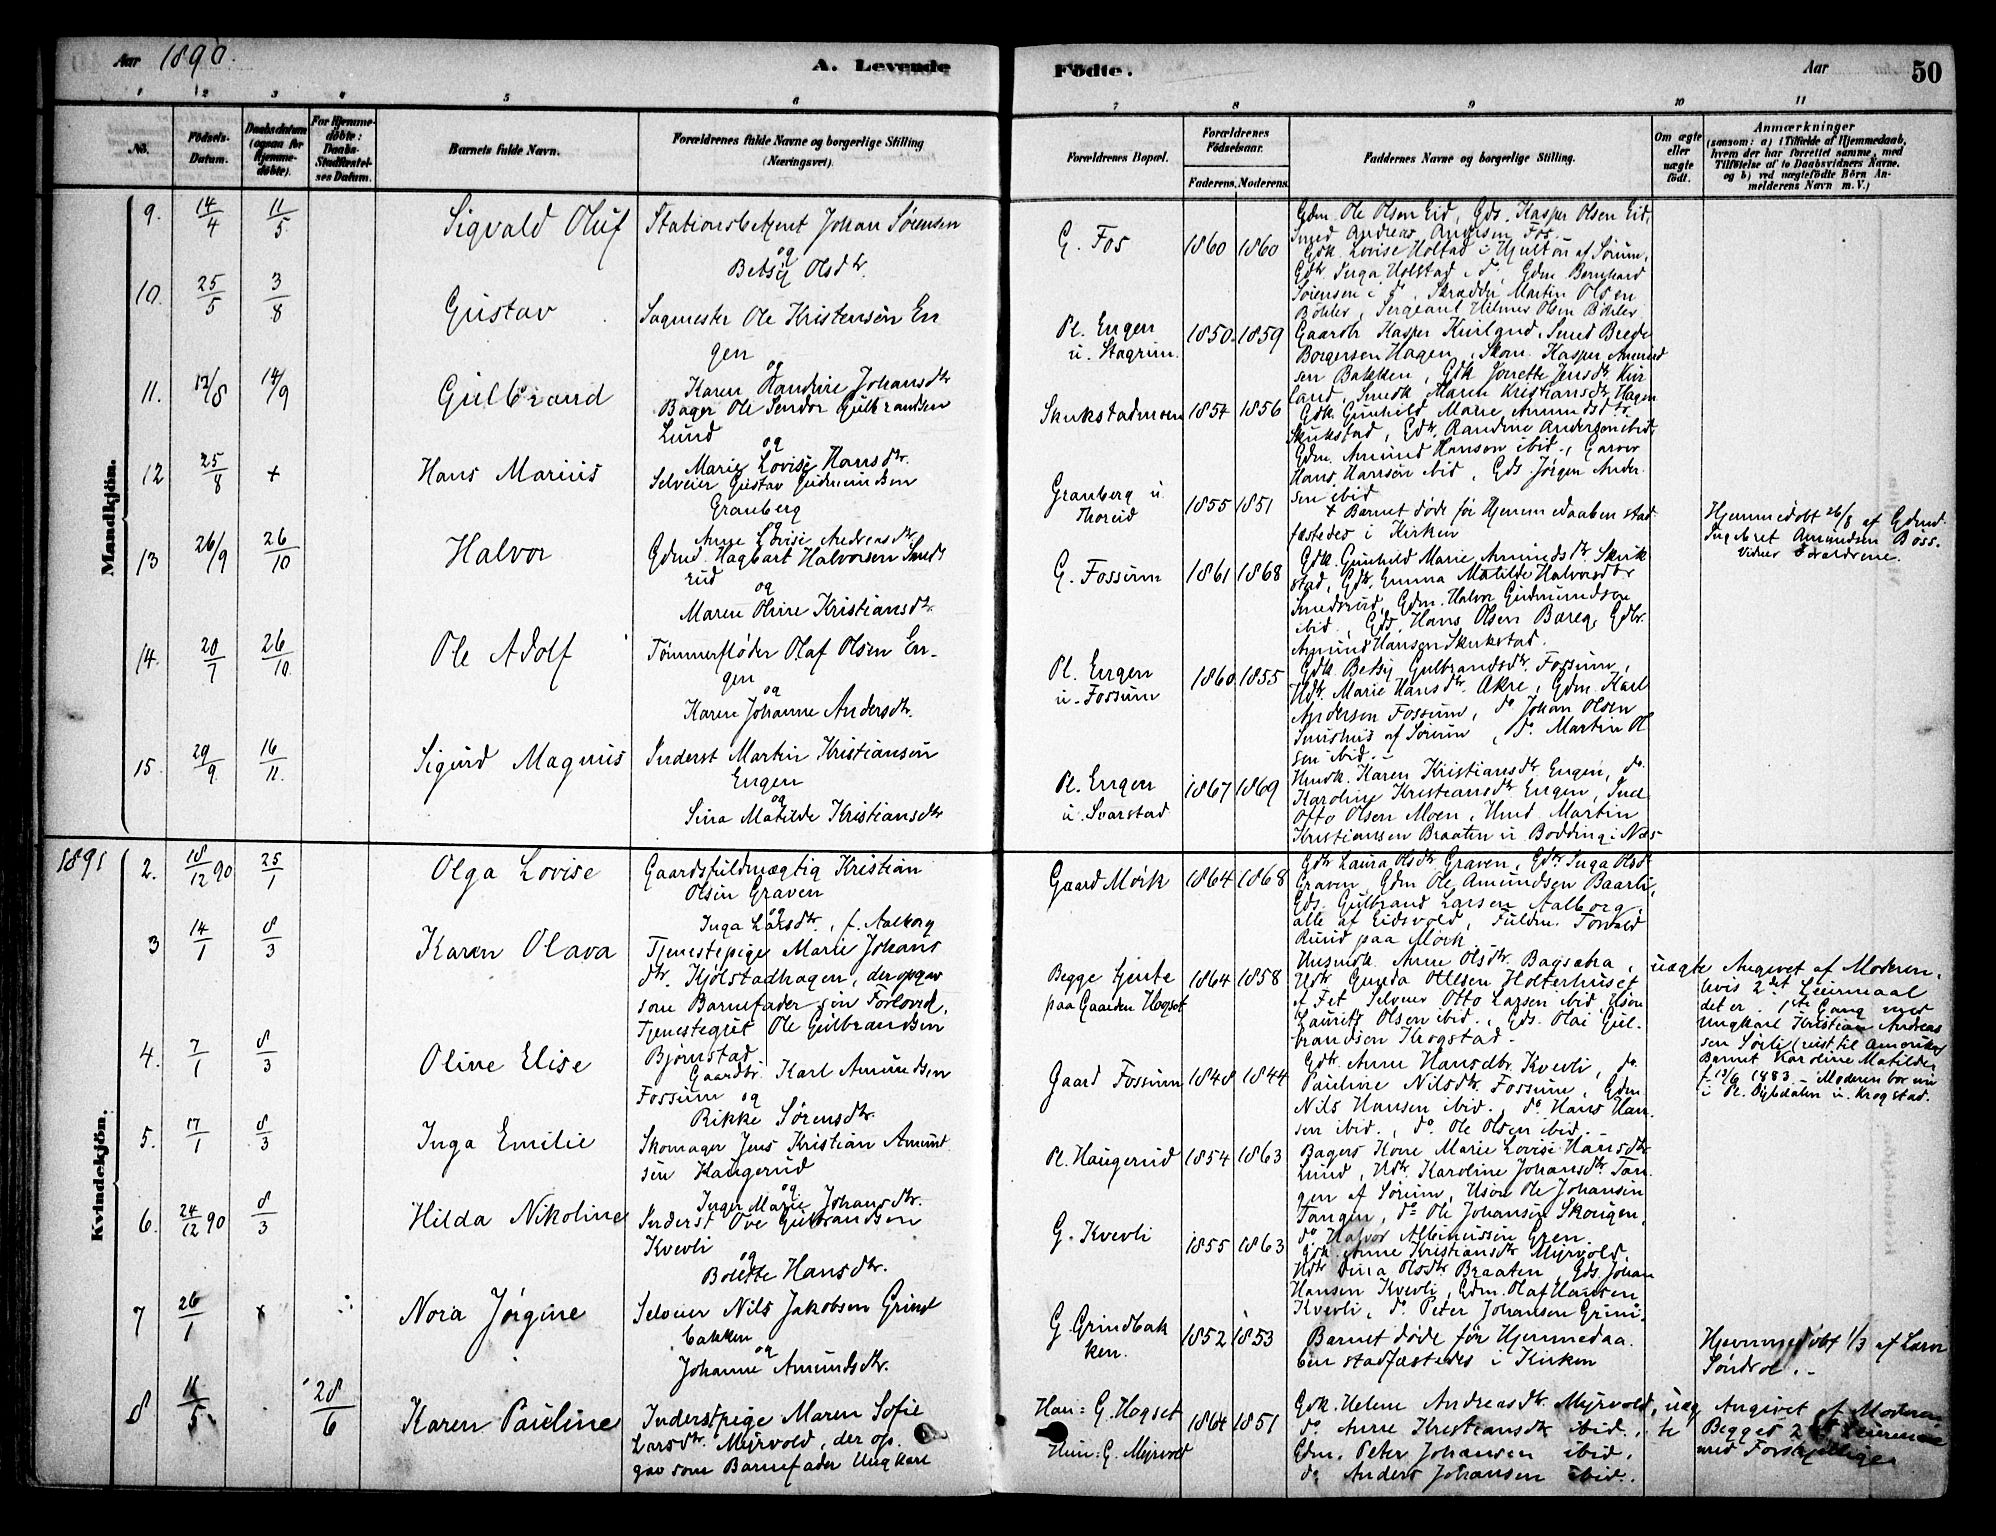 Aar 1890.
A. Levende
Födte.
Aar
50
1 2 3 4 5 6 7 8 9 10 11
No.
Födsels-Datum.
Daabsdatum (ogsaa for Hjemmedöbte).
For Hjemmedöbte: Daabs-Stadfæstelses Datum.
Barnets fulde Navn.
Forældrenes fulde Navne og borgerlige Stilling (Næringsvei).
Forældrenes Bopæl.
Forældrenes Födselsaar.
Faderens. Moderens.
Faddernes Navne og borgerlige Stilling.
Om ægte eller uægte födt.
Anmærkninger
(saasom: a) i Tilfælde af Hjemmedaab, hvem der har forrettet samme, med Tilföielse af to Daabsvidners Navne, og b) ved uægtefödte Börn Anmelderens Navn m. V.)
Mandkjön.
9. 14/4 11/5 Sigvald Oluf
Stationsbetjent Johan Sörensen
og
Betsy Olsdtr.
G. Fos 1860 1860
Gdm. Ole Olsen Eid, Gds. Kasper Olsen Eid,
Smed Andreas Andersen Fos.
Gdk. Lovise Holtad i Hjultön af Sörum,
Gdtr Inga Holstad i do, Gdm Bernhard
Sörensen i do, Skrædder Martin Olsen
Böhler, Sergeant Hilmer Olsen Böhler
10. 25/5 3/8 Gustav
Sagmester Ole Kristensön En
gen
og
Karen Randine Johansdtr
Pl. Engen
u. Stagrim. 1850. 1859
Gaardbr Kasper Kurland, Smed Brede
Borgersen Hagen, Skom. Kasper Amund
sen Bakken, Gdk Jonette Jensdtr Kur
land, Smedk. Maren Kristiansdtr, Hagen
11. 12/8 14/9 Gulbrand
Bager Ole Sendor Gulbrandsen
Lund
og
Marie Lovise Hansdtr.
Skukstadmoen 1854 1856
Gdk. Gunhild Marie Amundsdtr
Skukstad, Gdtr. Randine Andersen ibid,
Gdm. Amund Hansen ibid., Garver
Hans Hansen ibid, Gds Jörgen Ander.
sen ibid
12 25/8 + Hans Marius
Selveier Gustav Gudmundsen
Granberg
og
Anne Lovise Andreasdtr
Granberg u.
Thoreid 1855 1851
+ Barnet döde för Hjemmedaaben stad
fæstedes i Kirken
Hjemmedöbt 26/8 af Gdmd
Ingebret Amundsen Böss.
Vidner Forældrene.
13 26/9 26/10 Halvor
Gdmd. Hagbart Halvorsen Smeds
rud
og
Maren Oline Kristiansdtr.
G. Fossum 1861 1868
Gdk. Gunhild Marie Amundsdtr Skuk
stad, Gdtr. Emma Matilde Halvorsdtr
Smedsrud, Gdm. Halvor Gudmundsen
ibid, Gds. Hans Olsen Bareg, Gdbr.
Amund Hansen Skukstad.
14. 20/7 26/10 Ole Adolf
Tömmerflöder Olaf Olsen En-
gen
og
Karen Johanne Andersdtr.
Pl. Engen
u. Fossum 1860. 1855
Gdk Betsy Gulbrandsdtr. Fossum,
Hdtr. Marie Hansdtr. Økre, Gdm. Karl
Andersen Fossum, do Johan Olsen
Smishus af Sörum, do. Martin Ol
sen ibid. –
15. 29/9 16/11. Sigurd Magnus
Inderst Martin Kristiansen
Engen
og
Sina Matilde Kristiansdtr
Pl. Engen
u. Svarstad 1867 1869
Hmdk. Karen Kristiansdtr Engen, do.
Karoline Kristiansdtr Engen, Ind.
Otto Olsen Moen, Hmd Martin
Kristiansen Braaten u Bodding i Næs
Kvindekjön.
1891 2. 18/12 90 25/1 Olga Lovise
Gaardsfuldmægtig Kristian
Olsen Graven
og
Inga Larsdtr., f. Aalborg
Gaard Mörk 1864 1868
Gdtr Laura Olsdtr Graven, Gdtr Inga Olsdtr
Graven, Gdm Ole Amundsen Baarli,
Gds. Gulbrand Larsen Aalborg,
alle af Eidsvold, Fuldm. Torvald
Ruud paa Mörk.
3 14/1 8/3 Karen Olava
Tjenestepige Marie Johans
dtr. Kjölstadhagen, der opgav
som Barnefader sin Forlovede,
Tjenestegut Ole Gulbrandsen
Björnstad.
Begge tjente
paa Gaarden Hogset 1864 1858
Husmdk. Anne Olsdtr. Bagsaka,
Hdtr Gunda Ottesen Holterhuset
af Fet Selveier Otto Larsen ibid Hsön
Laurits Olsen ibid., Gds. Olai Gul.
brandsen Krogstad.
uægte
Angivet af Moderen,
hvis 2det Leiermaal
det er. 1ste Gang med
Ungkarl Kristian Andreas
sen Sörli (reist til Amerika)
Barnet Karoline Matilde,
f. 13/6 1883. – Moderen bor nu
i Pl. Dybdalen u. Krogstad.
4. 7/1 8/3 Oline Elise
Gaardbr. Karl Amundsen
Fossum og
Rikke Sörensdtr.
Gaard Fossum 1848 1844
Gdk. Anne Hansdtr. Kvevli, do.
Pauline Nilsdtr. Fossum, Gdm
Nils Hansen ibid., do. Hans Han
sen ibid., do. Ole Olsen ibid. –
5. 17/1 8/3 Inga Emilie
Skomager Jens Kristian Amund
sen Haugerud
og
Inger Marie Johansdtr.
Pl. Haugerud 1854 1863
Bagers Kone Marie Lovise Hansdtr
Lund, Hdtr. Karoline Johansdtr. Tan
gen af Sörum, Hsön Ole Johansen
Tangen, do Ole Johansen Skougen,
do Halvor Albinussen Gren.
6. 24/12 90 8/3 Hilda Nikoline
Inderst Ove Gulbrandsen
Kvevli
og
Bolette Hansdtr.
G. Kvevli 1855 1863
Gdk. Anne Kristiansdtr Myrvold,
Hdtr Dina Olsdtr Braaten, Gds. Johan
Hansen Kvevli, Gdm. Olaf Hansen
Kvevli, do. Peter Johansen Grini.
7 26/1 x Nora Jörgine
Selveier Nils Jakobsen Grind
bakken
og
Johanne Amundsdtr.
G. Grindbak
ken. 1852 1853
Barnet döde för Hjemmedaa.
ben stadfæstedes i Kirken
Hjemmedöbt 1/3 af Lærer
Söndrol. –
8 11/5. 28/6 Karen Pauline
Inderstpige Maren Sofie
Larsdtr. Myrvold, der op.
gav som Barnefader Ungkarl
Han: G. Hogset
Hun: G. Myrvold 1864 1851
Gdk. Helene Andreasdtr. Myrvold,
do. Anne Kristiansdtr ibid.,
Gdm. Peter Johansen ibid.
do Anders Johansen ibid.
uæg
te
Angivet af Moderen
Begges 2det Leiermaal
med Forskjellige